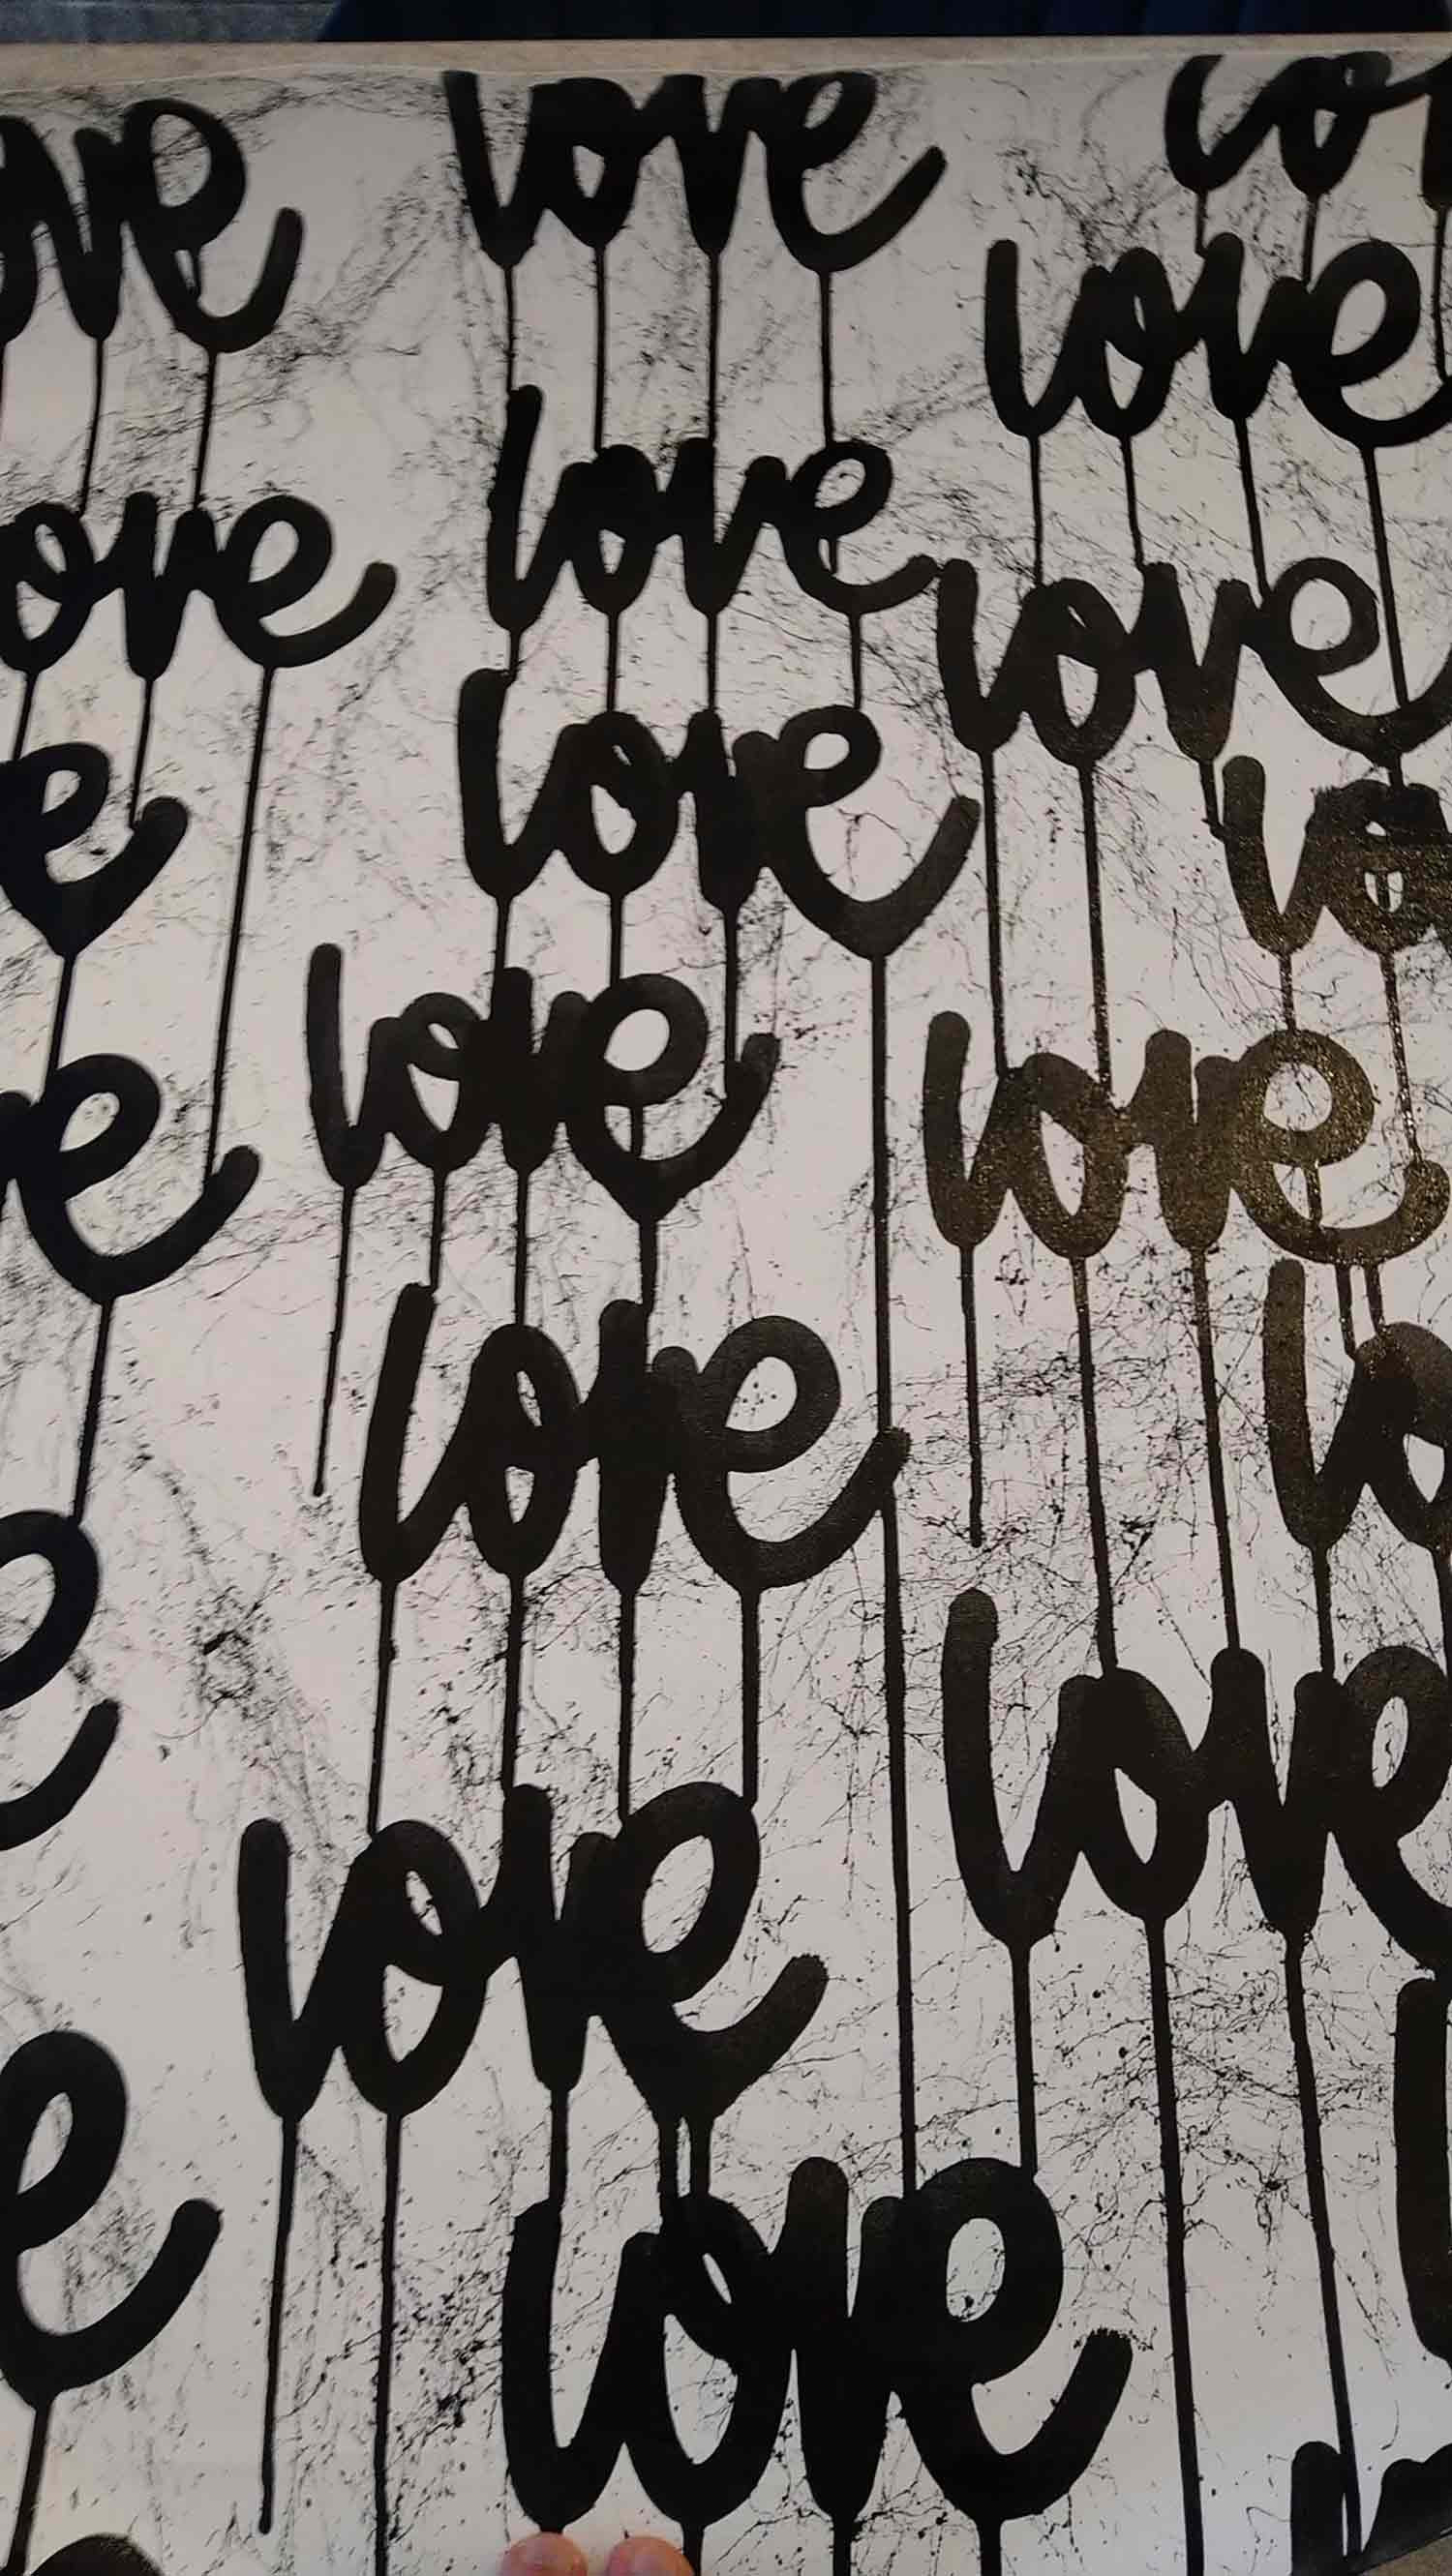 ove love lov
love
ove love love
e love lo
ve love love
love lo
e love
love
e love